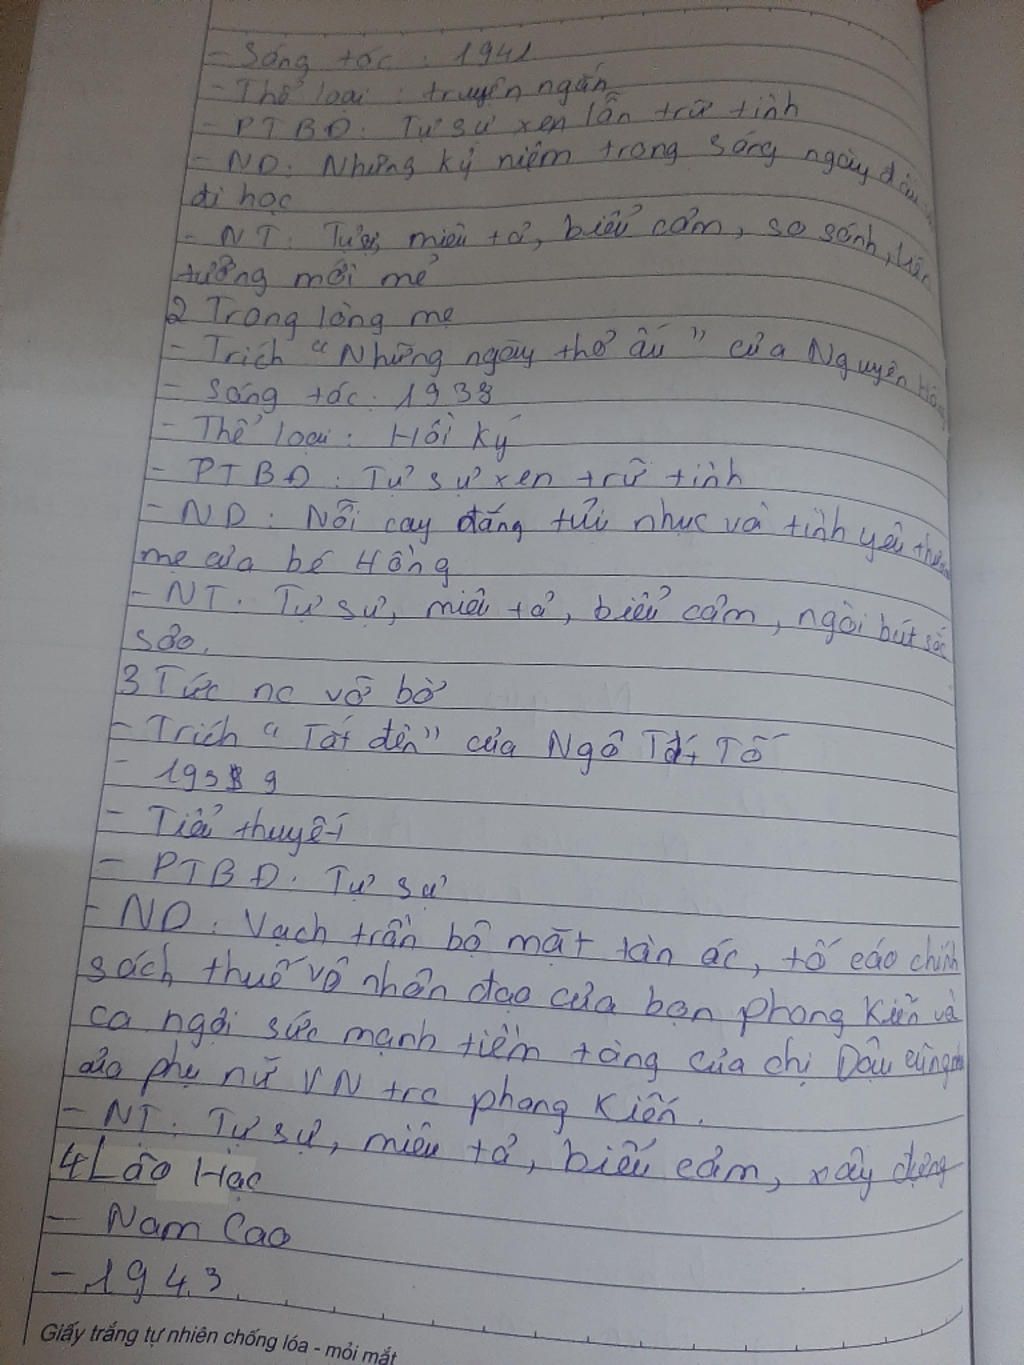 - Sáng tác : 1941
- Thể loại : truyện ngắn
- PTBĐ : Tự sự xen lẫn trữ tình
- ND : Những kỷ niệm trong sáng ngày đầu
đi học
- NT : Tự sự, miêu tả, biểu cảm, so sánh, liên
tưởng mới mẻ
2 Trong lòng mẹ
- Trích "Những ngày thơ ấu" của Nguyên Hồng
- Sáng tác : 1938
- Thể loại : Hồi ký
- PTBĐ : Tự sự xen trữ tình
- ND : Nỗi cay đắng tủi nhục và tình yêu thương
mẹ của bé Hồng
- NT : Tự sự, miêu tả, biểu cảm, ngòi bút sắc
sảo.
3 Tức nc vỡ bờ
- Trích "Tắt đèn" của Ngô Tất Tố
- 1939
- Tiểu thuyết
- PTBĐ : Tự sự
- ND : Vạch trần bộ mặt tàn ác, tố cáo chính
sách thuế vô nhân đạo của bọn phong kiến và
ca ngợi sức mạnh tiềm tàng của chị Dậu cũng như
của phụ nữ VN trc phong kiến.
- NT : Tự sự, miêu tả, biểu cảm, xây dựng
4 Lão Hạc
- Nam Cao
- 1943
Giấy trắng tự nhiên chống lóa - mỏi mắt